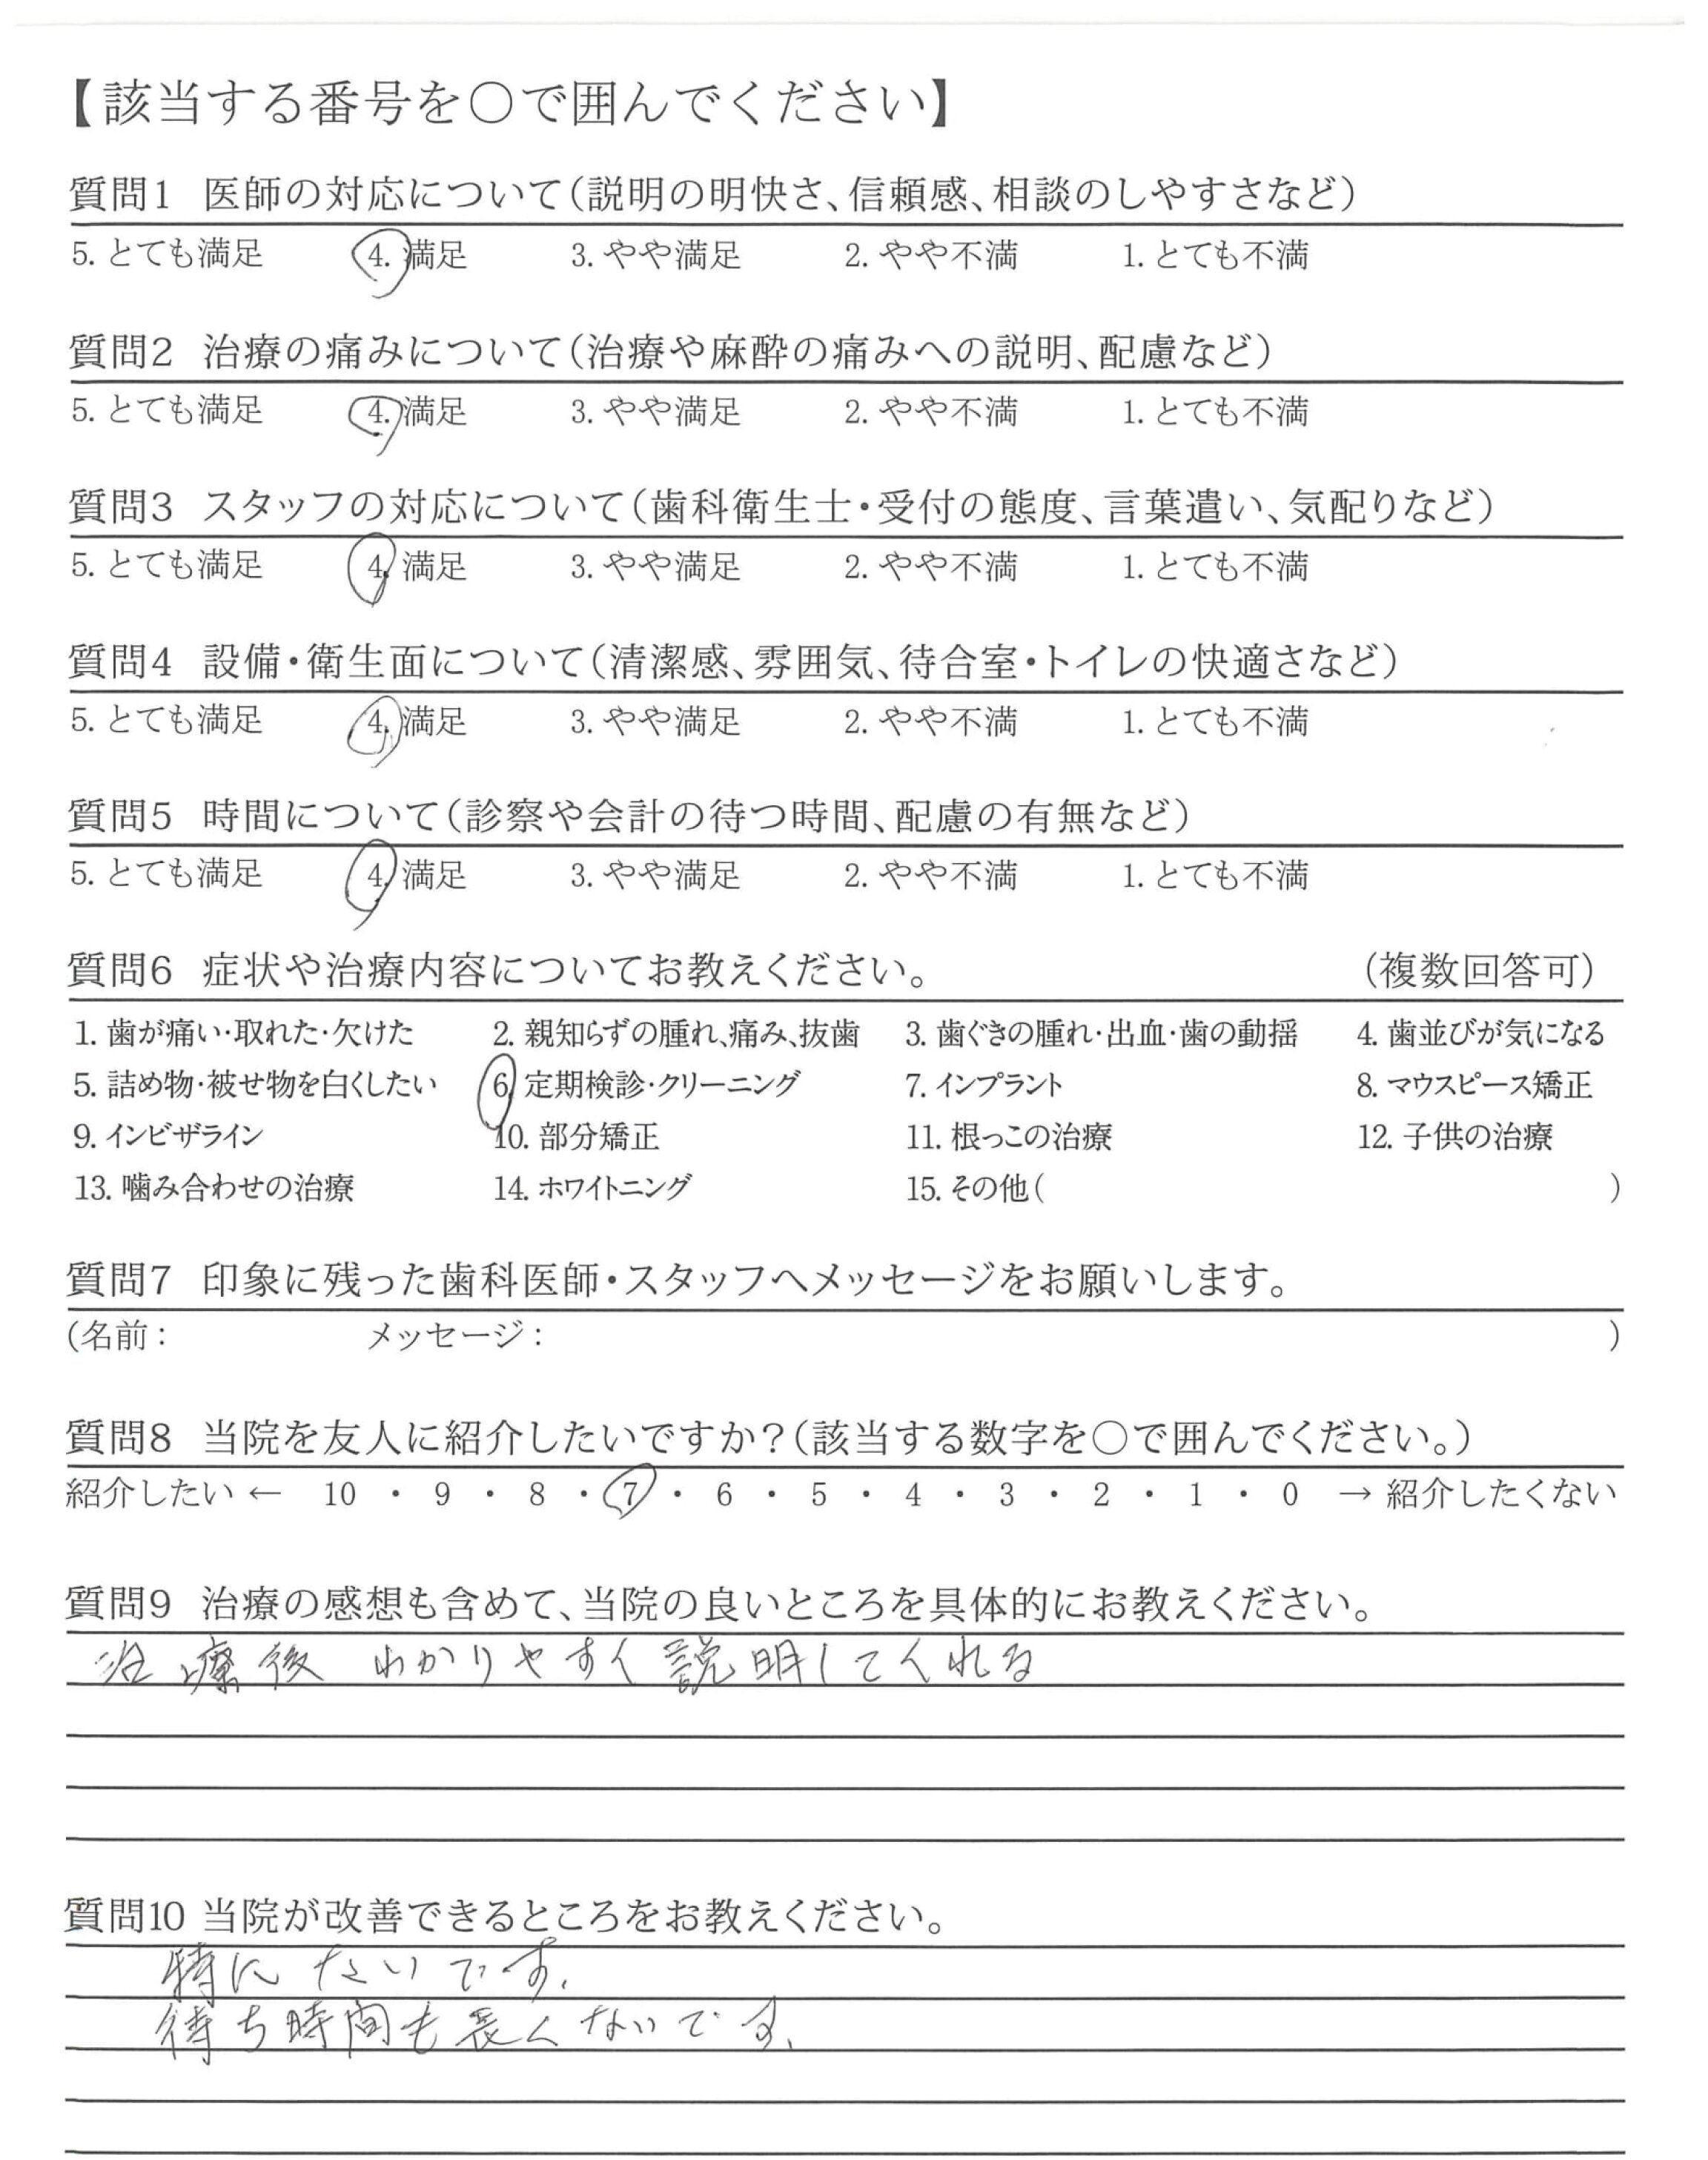 【該当する番号を○で囲んでください】
質問1 医師の対応について(説明の明快さ、信頼感、相談のしやすさなど)
5. とても満足 4. 満足 3. やや満足 2. やや不満 1. とても不満
質問2 治療の痛みについて(治療や麻酔の痛みへの説明、配慮など)
5. とても満足 4. 満足 3. やや満足 2. やや不満 1. とても不満
質問3 スタッフの対応について(歯科衛生士・受付の態度、言葉遣い、気配りなど)
5. とても満足 4. 満足 3. やや満足 2. やや不満 1. とても不満
質問4 設備・衛生面について(清潔感、雰囲気、待合室・トイレの快適さなど)
5. とても満足 4. 満足 3. やや満足 2. やや不満 1. とても不満
質問5 時間について(診察や会計の待つ時間、配慮の有無など)
5. とても満足 4. 満足 3. やや満足 2. やや不満 1. とても不満
質問6 症状や治療内容についてお教えください。 (複数回答可)
1. 歯が痛い・取れた・欠けた 2. 親知らずの腫れ、痛み、抜歯 3. 歯ぐきの腫れ・出血・歯の動揺 4. 歯並びが気になる
5. 詰め物・被せ物を白くしたい 6. 定期検診・クリーニング 7. インプラント 8. マウスピース矯正
9. インビザライン 10. 部分矯正 11. 根っこの治療 12. 子供の治療
13. 噛み合わせの治療 14. ホワイトニング 15. その他( )
質問7 印象に残った歯科医師・スタッフへメッセージをお願いします。
(名前: メッセージ: )
質問8 当院を友人に紹介したいですか?(該当する数字を○で囲んでください。)
紹介したい ← 10 ・ 9 ・ 8 ・ 7 ・ 6 ・ 5 ・ 4 ・ 3 ・ 2 ・ 1 ・ 0 → 紹介したくない
質問9 治療の感想も含めて、当院の良いところを具体的にお教えください。
治療後 わかりやすく説明してくれる
質問10 当院が改善できるところをお教えください。
特にないです。
待ち時間も長くないです。